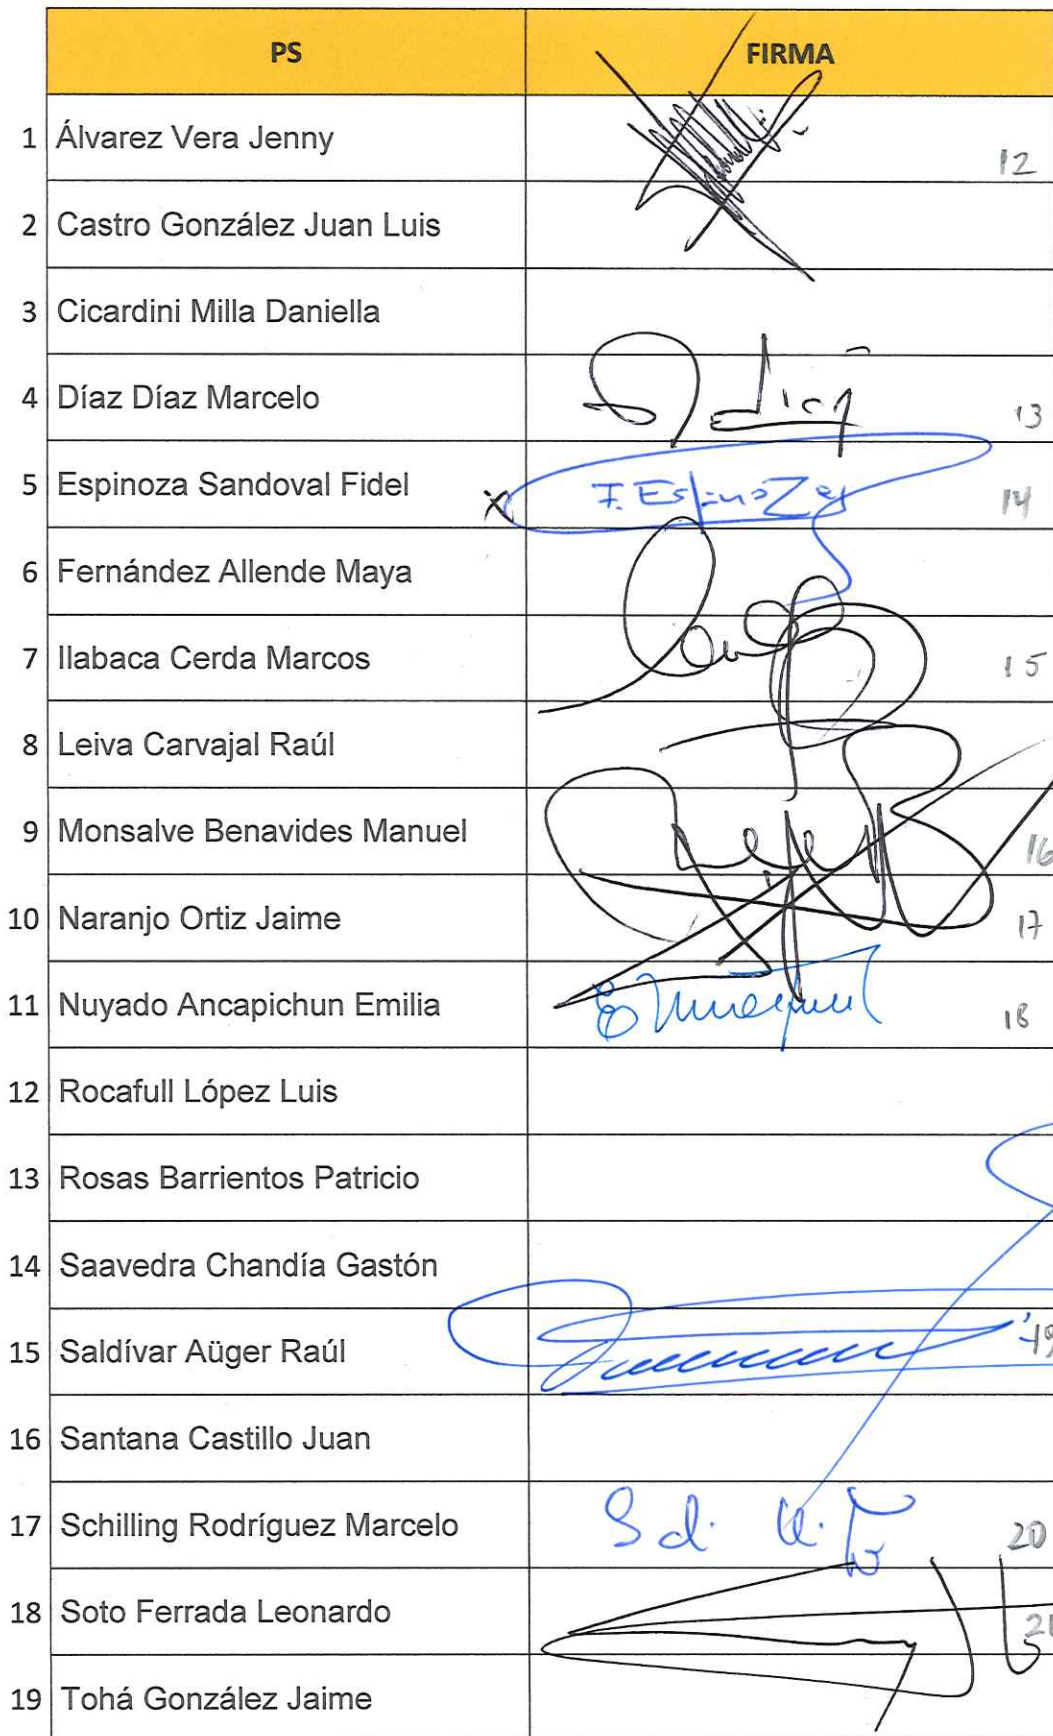 PS FIRMA
1 Álvarez Vera Jenny 12
2 Castro González Juan Luis
3 Cicardini Milla Daniella
4 Díaz Díaz Marcelo 13
5 Espinoza Sandoval Fidel x F. Espinoza 14
6 Fernández Allende Maya
7 Ilabaca Cerda Marcos 15
8 Leiva Carvajal Raúl
9 Monsalve Benavides Manuel 16
10 Naranjo Ortiz Jaime 17
11 Nuyado Ancapichun Emilia 18
12 Rocafull López Luis
13 Rosas Barrientos Patricio
14 Saavedra Chandía Gastón
15 Saldívar Aüger Raúl 19
16 Santana Castillo Juan
17 Schilling Rodríguez Marcelo 20
18 Soto Ferrada Leonardo 21
19 Tohá González Jaime